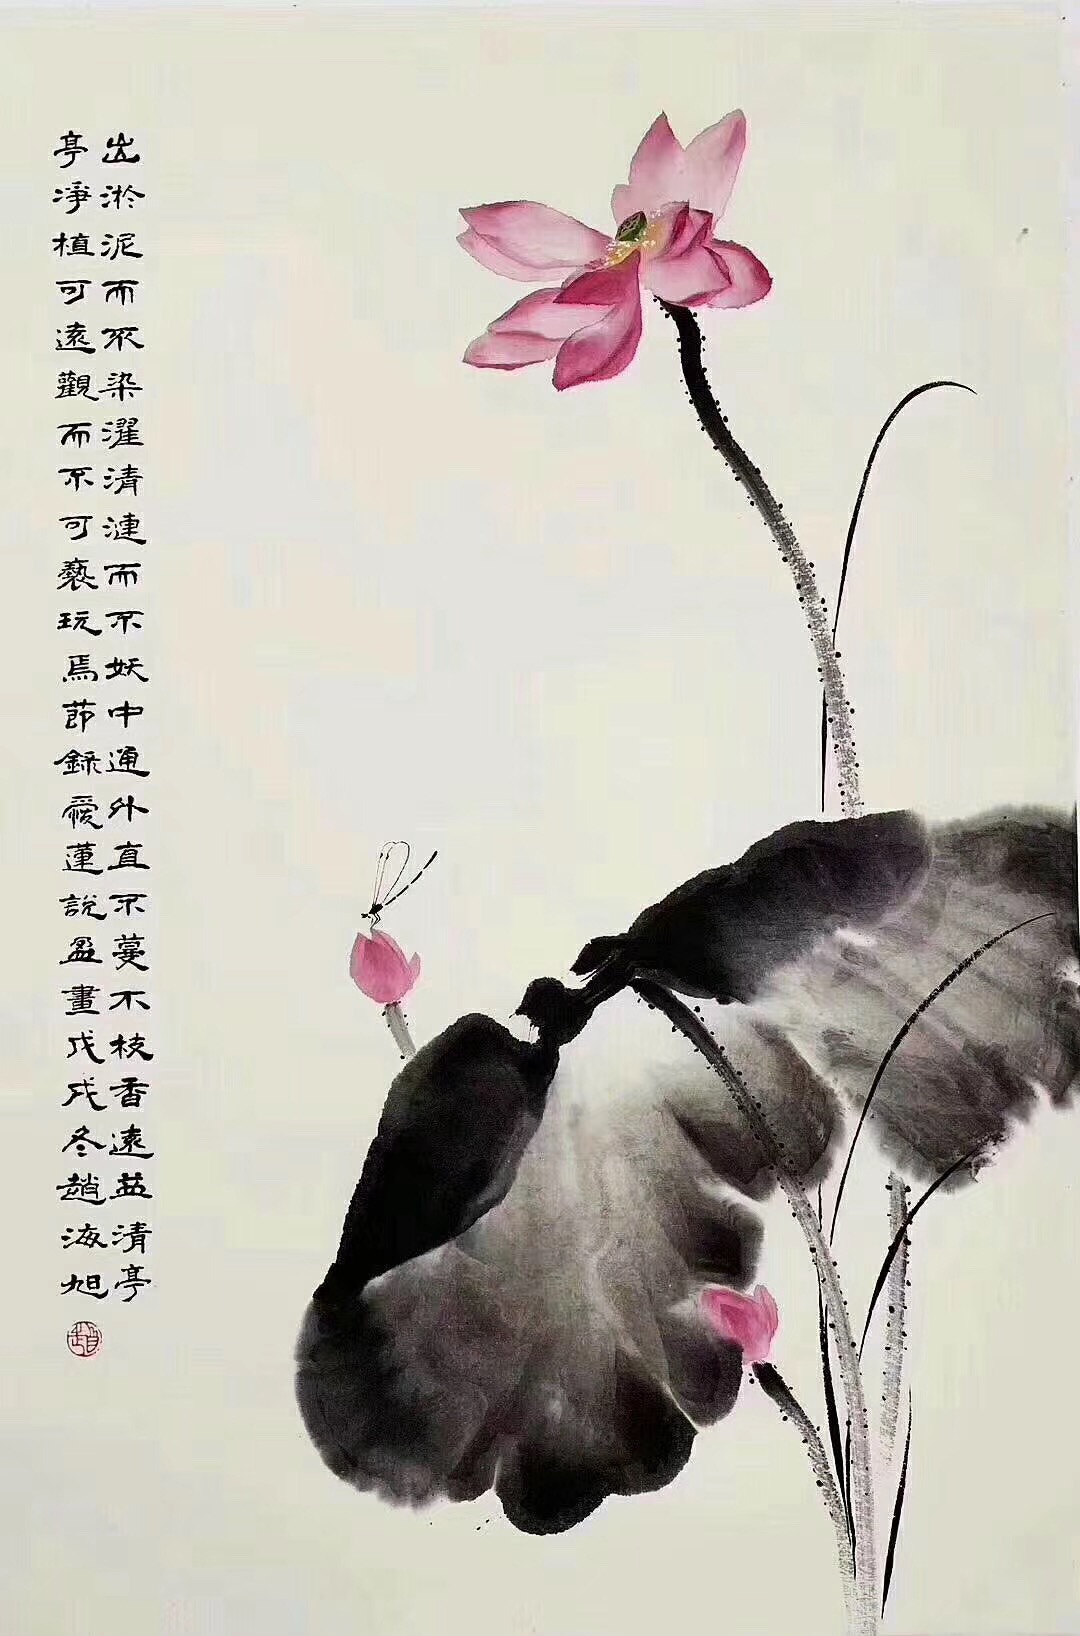 出淤泥而不染濯清漣而不妖中通外直不蔓不枝香遠益清亭
亭淨植可遠觀而不可褻玩焉節錄愛蓮說盈畫戊戌冬趙海旭